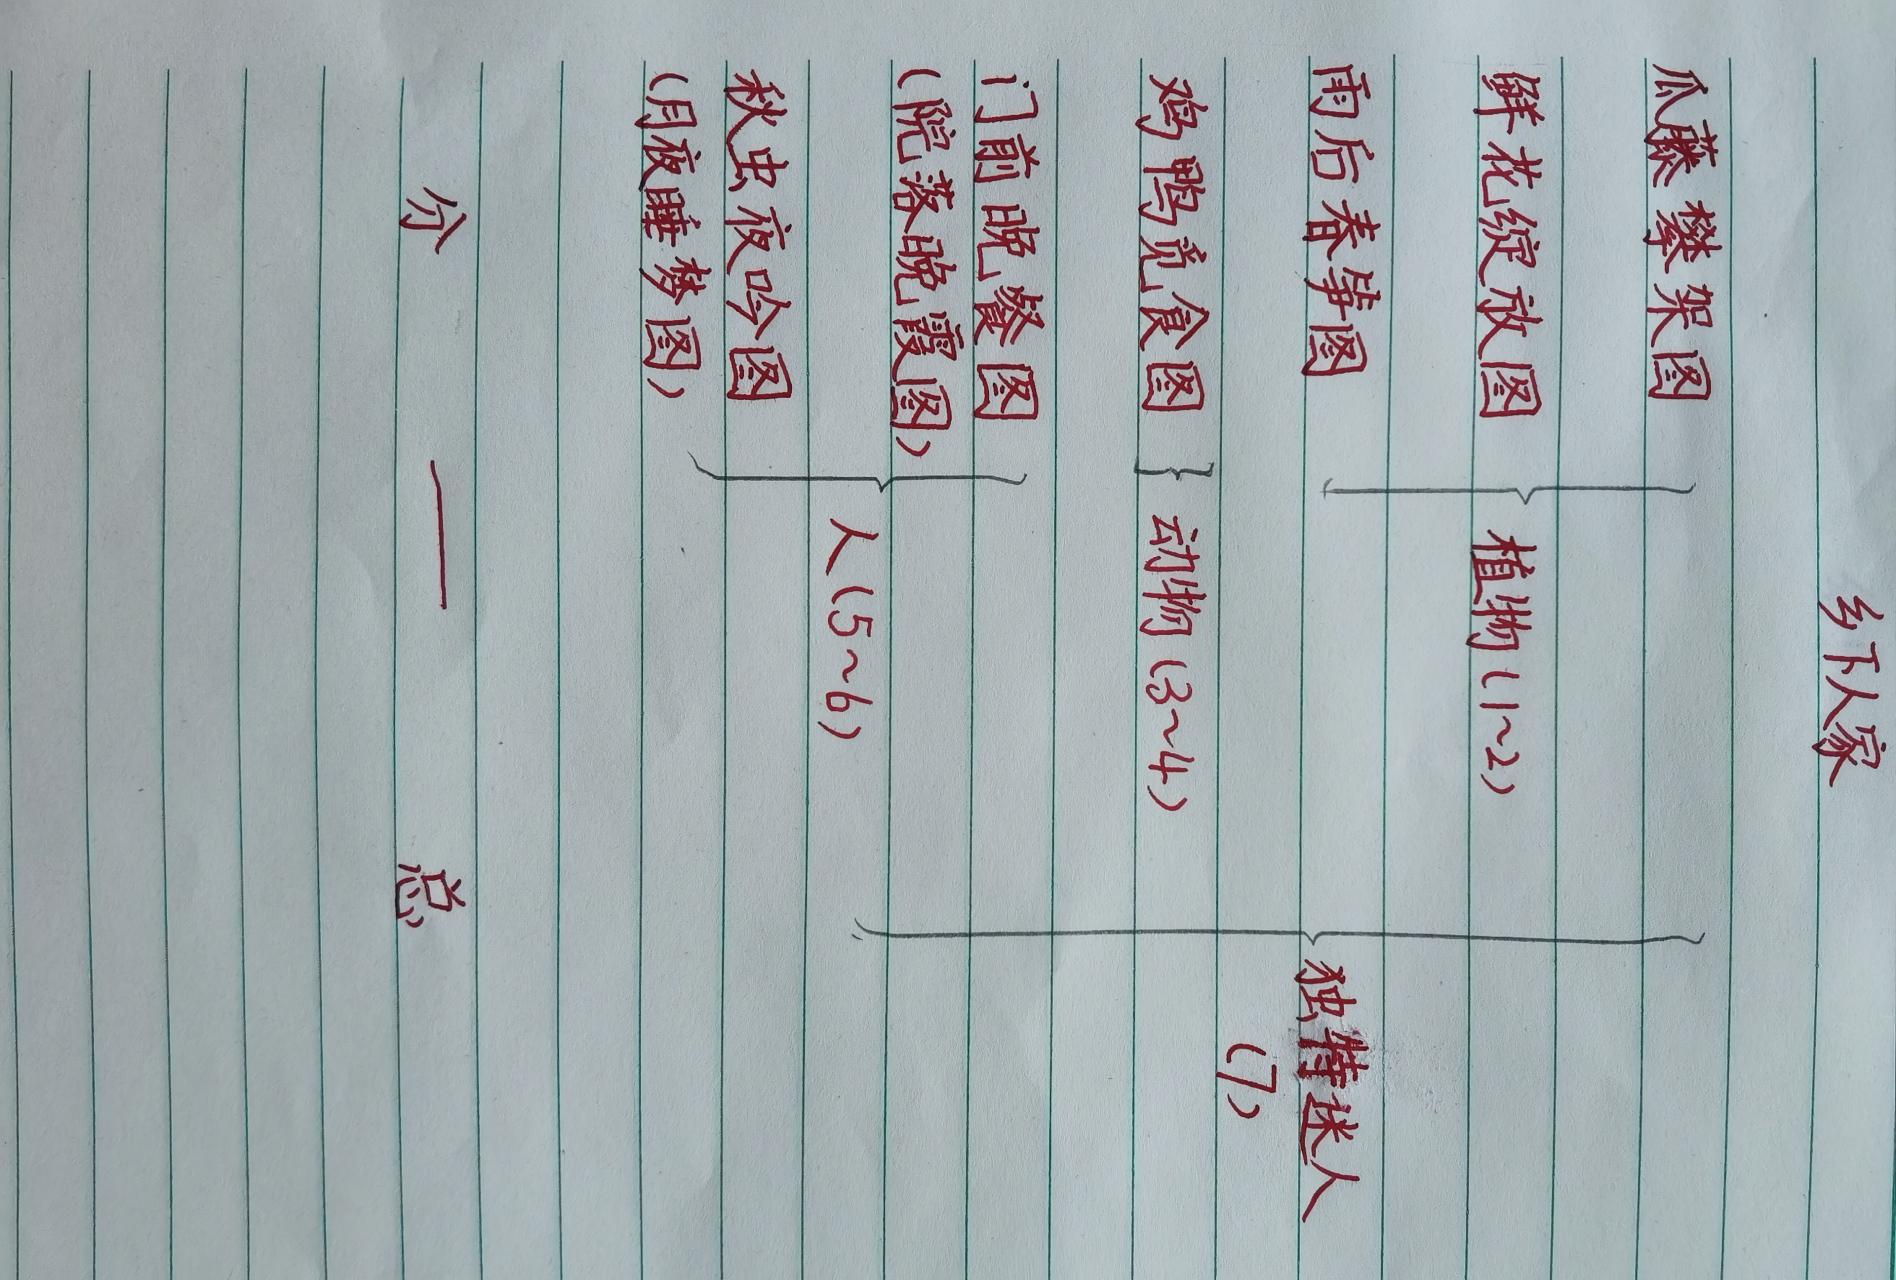 乡下人家
瓜藤攀架图
鲜花绽放图
植物(1~2)
雨后春笋图
鸡鸭觅食图
动物(3~4)
独特迷人
(7)
门前晚餐图
(院落晚霞图)
人(5~6)
秋虫夜吟图
(月夜睡梦图)
分 — 总